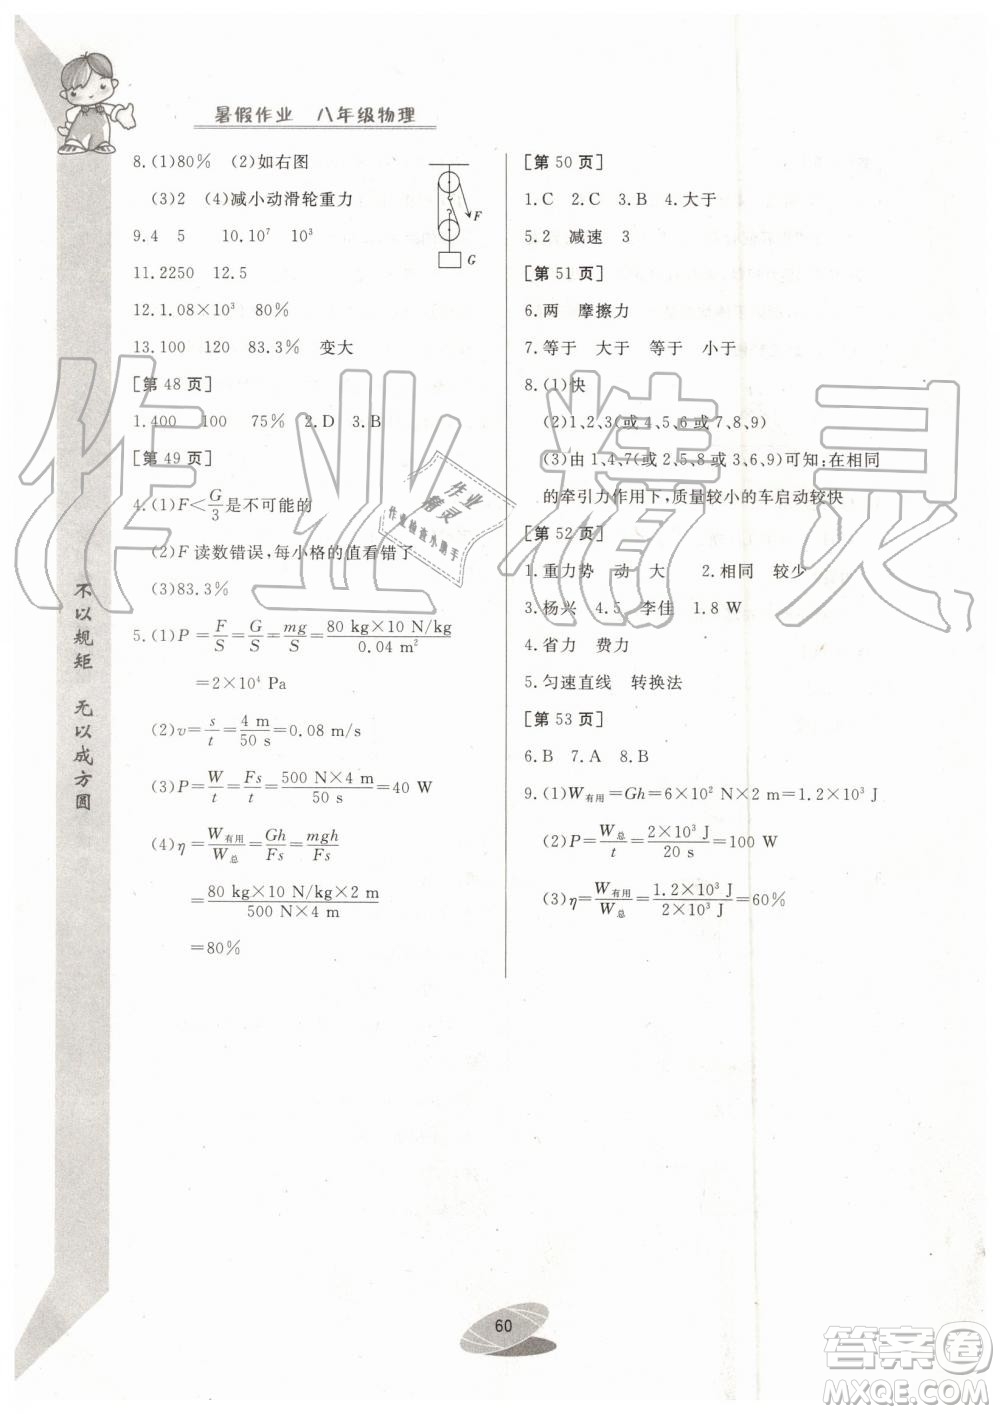 暑假作业 八年级物理
8.(1)80% (2)如右图
(3)2 (4)减小动滑轮重力
9.4 5 10.10⁷ 10³
11.2250 12.5
12.1.08×10³ 80%
13.100 120 83.3% 变大
F
G
[第 48 页]
1.400 100 75% 2.D 3.B
[第 49 页]
4.(1)F<G/3是不可能的
(2)F 读数错误,每小格的值看错了
(3)83.3%
5.(1)P=F/S=G/S=mg/S=80 kg×10 N/kg/0.04 m²
=2×10⁴ Pa
(2)v=s/t=4 m/50 s=0.08 m/s
(3)P=W/t=Fs/t=500 N×4 m/50 s=40 W
(4)η=W有用/W总=Gh/Fs=mgh/Fs
=80 kg×10 N/kg×2 m/500 N×4 m
=80%
[第 50 页]
1.C 2.C 3.B 4.大于
5.2 减速 3
[第 51 页]
6.两 摩擦力
7.等于 大于 等于 小于
8.(1)快
(2)1,2,3(或 4、5、6或7、8、9)
(3)由 1、4、7(或 2、5、8或 3、6、9)可知:在相同
的牵引力作用下,质量较小的车启动较快
[第 52 页]
1.重力势 动 大 2.相同 较少
3.杨兴 4.5 李佳 1.8 W
4.省力 费力
5.匀速直线 转换法
[第 53 页]
6.B 7.A 8.B
9.(1)W有用=Gh=6×10² N×2 m=1.2×10³ J
(2)P=W总/t=2×10³ J/20 s=100 W
(3)η=W有用/W总=1.2×10³ J/2×10³ J=60%
不以规矩 无以成方圆
作业精灵
作业
精灵
作业检查小助手
60
答案圈
MXQE.COM